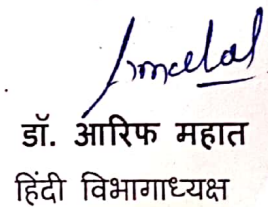 डॉ. आरिफ महात
हिंदी विभागाध्यक्ष